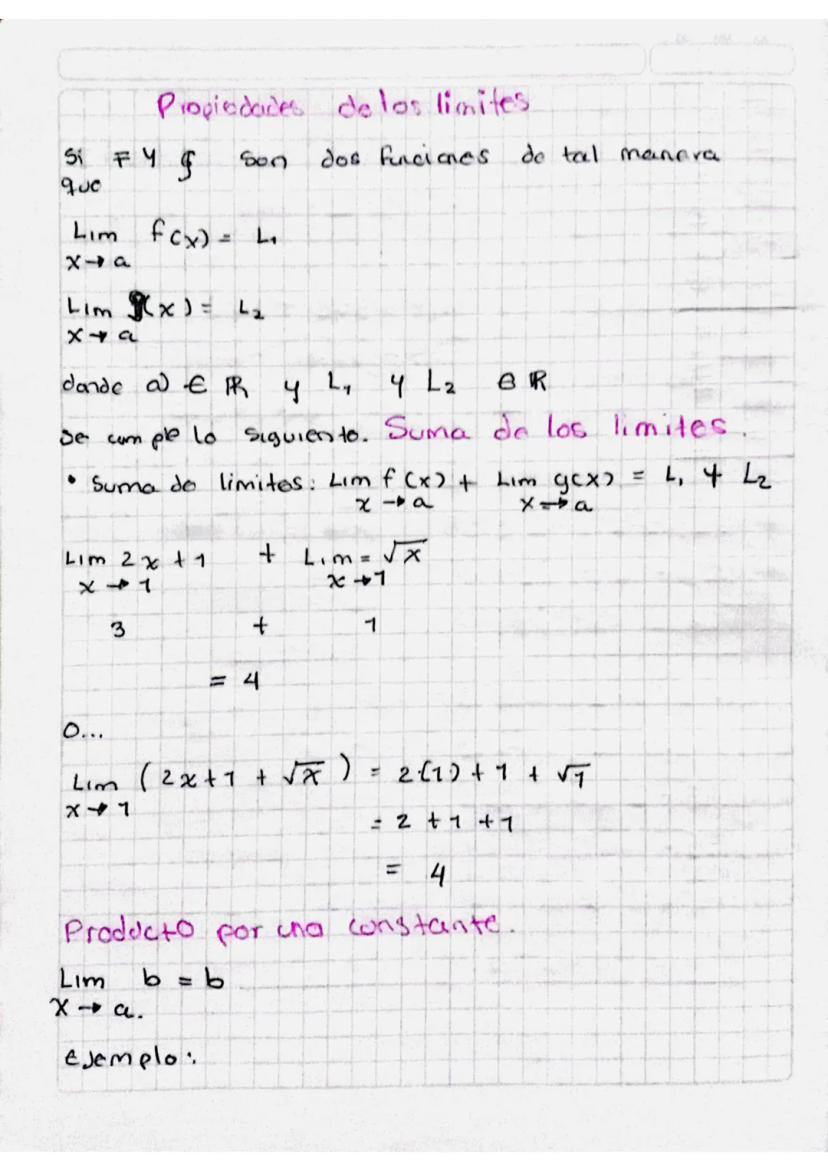 Propiedades de los limites
Si F y g son dos funciones de tal manera
que
Lim f(x) = L₁
x→a
Lim g(x) = L₂
x→a
donde a) ∈ ℝ y L₁ y L₂ ∈ ℝ
se cumple lo siguiente. Suma de los limites.
• Suma de limites: Lim f(x) + Lim g(x) = L₁ + L₂
x→a x→a
Lim 2x+1 + Lim = √x
x→1 x→1
3 + 1
= 4
O...
Lim (2x+1 + √x) = 2(1) + 1 + √1
x→1
= 2 + 1 + 1
= 4
Producto por una constante.
Lim b = b
x→a.
Ejemplo: